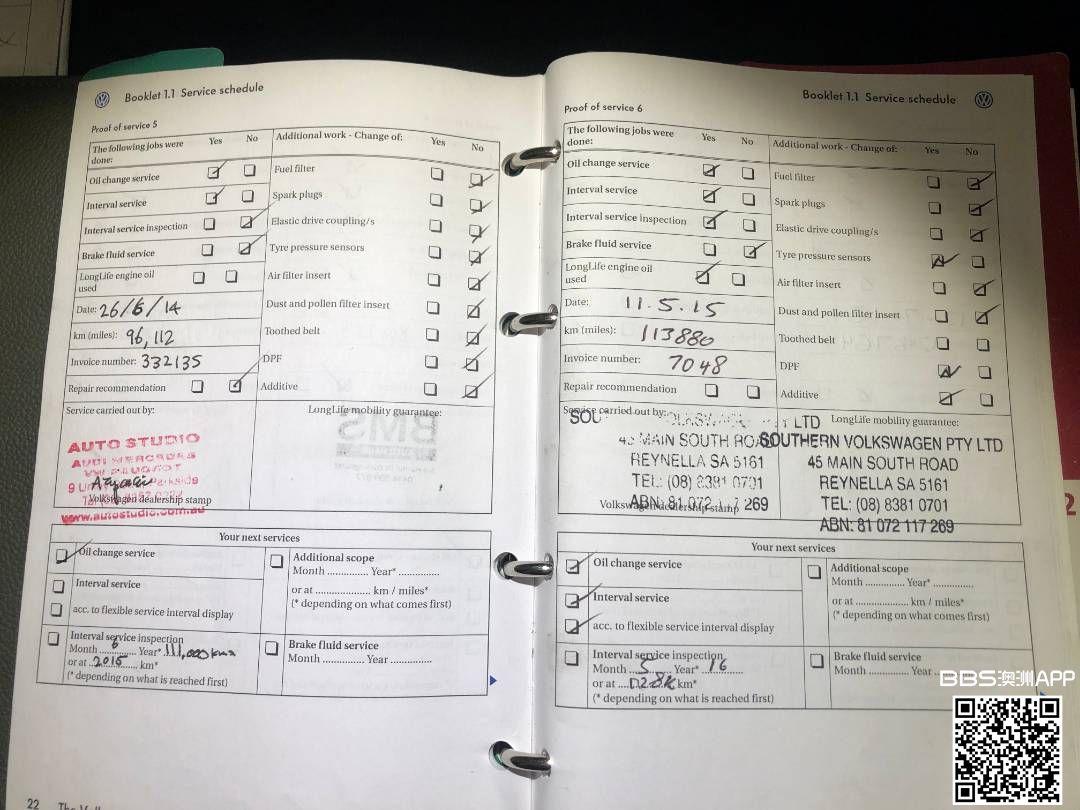 Booklet 1.1 Service schedule
Proof of service 5
The following jobs were done:
Yes
No
Additional work - Change of:
Yes
No
Oil change service
Fuel filter
Interval service
Spark plugs
Interval service inspection
Elastic drive coupling/s
Brake fluid service
Tyre pressure sensors
LongLife engine oil used
Air filter insert
Date: 26/6/14
Dust and pollen filter insert
km (miles): 96,112
Toothed belt
Invoice number: 332135
DPF
Repair recommendation
Additive
Service carried out by:
LongLife mobility guarantee:
AUTO STUDIO
AUDI MERCEDES
VW PEUGEOT
Volkswagen dealership stamp
www.autostudio.com.au
BMS
Your next services
Oil change service
Interval service
acc. to flexible service interval display
Additional scope
Month .............. Year* ..............
or at .................... km / miles*
(* depending on what comes first)
Interval service inspection
Month 6 Year* 111,000 kms
or at 2015 km*
(* depending on what is reached first)
Brake fluid service
Month .............. Year ..............
22
Booklet 1.1 Service schedule
Proof of service 6
The following jobs were done:
Yes
No
Additional work - Change of:
Yes
No
Oil change service
Fuel filter
Interval service
Spark plugs
Interval service inspection
Elastic drive coupling/s
Brake fluid service
Tyre pressure sensors
LongLife engine oil used
Air filter insert
Date: 11.5.15
Dust and pollen filter insert
km (miles): 113880
Toothed belt
Invoice number: 7048
DPF
Repair recommendation
Additive
Service carried out by:
LongLife mobility guarantee:
LTD
MAIN SOUTH ROAD
REYNELLA SA 5161
TEL: (08) 8381 0701
ABN: 81 072 117 269
Volkswagen dealership stamp
SOUTHERN VOLKSWAGEN PTY LTD
45 MAIN SOUTH ROAD
REYNELLA SA 5161
TEL: (08) 8381 0701
ABN: 81 072 117 269
Your next services
Oil change service
Interval service
acc. to flexible service interval display
Additional scope
Month .............. Year* ..............
or at .................... km / miles*
(* depending on what comes first)
Interval service inspection
Month 5 Year* 16
or at 128K km*
(* depending on what is reached first)
Brake fluid service
Month .............. Year
2
BBS澳洲APP